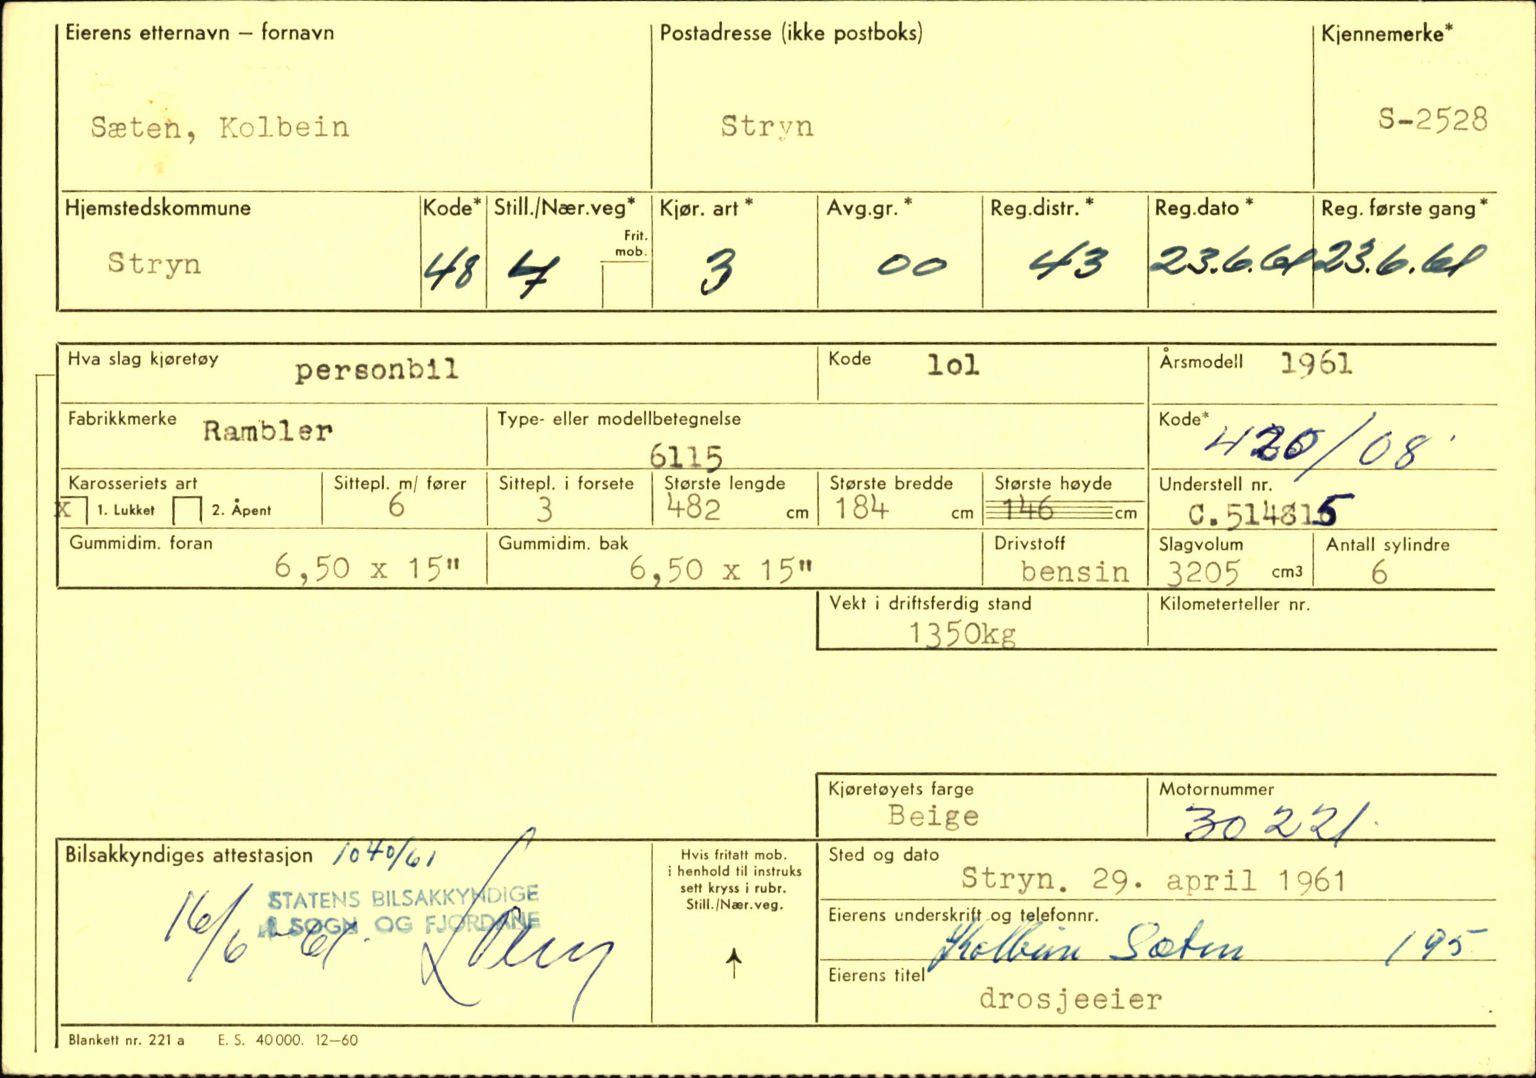 Eierens etternavn — fornavn Postadresse (ikke postboks) Kjennemerke*
Sæten, Kolbein Stryn S-2528
Hjemstedskommune Kode* Still./Nær.veg* Kjør. art* Avg.gr.* Reg.distr.* Reg.dato* Reg. første gang*
Frit.
mob.
Stryn 48 7 3 00 43 23.6.61 23.6.61
Hva slag kjøretøy personbil Kode lol Årsmodell 1961
Fabrikkmerke Rambler Type- eller modellbetegnelse Kode*
6115 420/08
Karosseriets art Sittepl. m/ fører Sittepl. i forsete Største lengde Største bredde Største høyde Understell nr.
x 1. Lukket 2. Åpent 6 3 482 cm 184 cm 146 cm C.514815
Gummidim. foran Gummidim. bak Drivstoff Slagvolum Antall sylindre
6,50 x 15" 6,50 x 15" bensin 3205 cm3 6
Vekt i driftsferdig stand Kilometerteller nr.
1350kg
Kjøretøyets farge Motornummer
Beige 30221.
Bilsakkyndiges attestasjon 1040/61
16/6-61.
STATENS BILSAKKYNDIGE
I SOGN OG FJORDANE
Hvis fritatt mob.
i henhold til instruks
sett kryss i rubr.
Still./Nær.veg.
Sted og dato
Stryn. 29. april 1961
Eierens underskrift og telefonnr.
Kolbein Sæten 195
Eierens titel
drosjeeier
Blankett nr. 221 a E. S. 40 000. 12—60